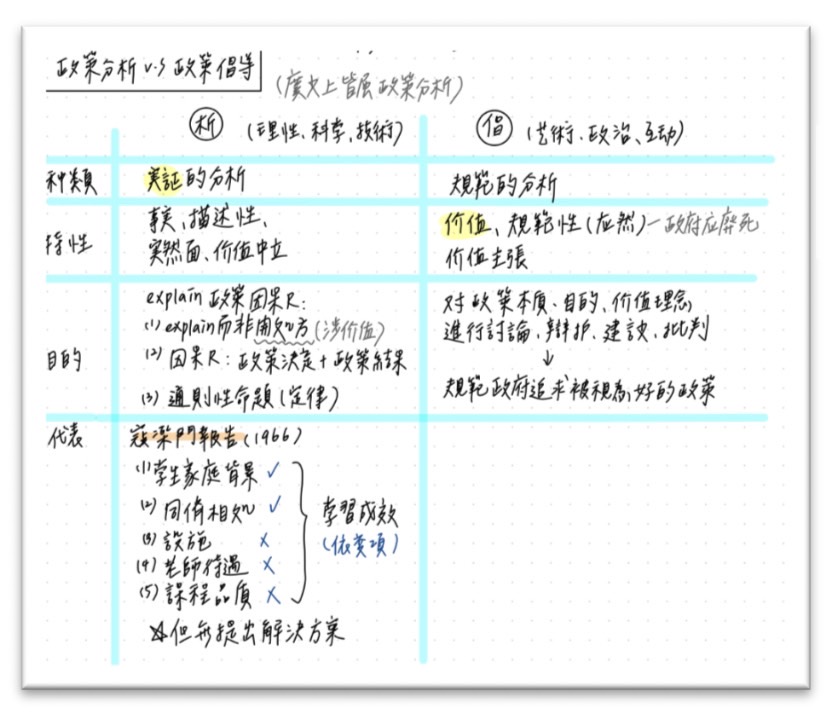 政策分析 v.s 政策倡導
(廣义上皆屬政策分析)
析 (理性、科学、技術)
倡 (艺術、政治、互动)
种類
実証的分析
規範的分析
特性
事实、描述性、
实然面、价值中立
价值、規範性(应然)—政府应廃死
价值主張
目的
explain 政策因果R:
(1) explain而非開処方(涉价值)
(2) 因果R:政策決定+政策結果
(3) 通則性命題(定律)
对政策本质、目的、价值理念,
進行討論、辯护、建议、批判
↓
規範政府追求被視為好的政策
代表
寇漯門報告(1966)
(1)学生家庭背景 ✓
(2) 同儕相処 ✓
(3) 設施 ×
(4) 老師待遇 ×
(5) 課程品质 ×
学習成效
(依变項)
但無提出解決方案